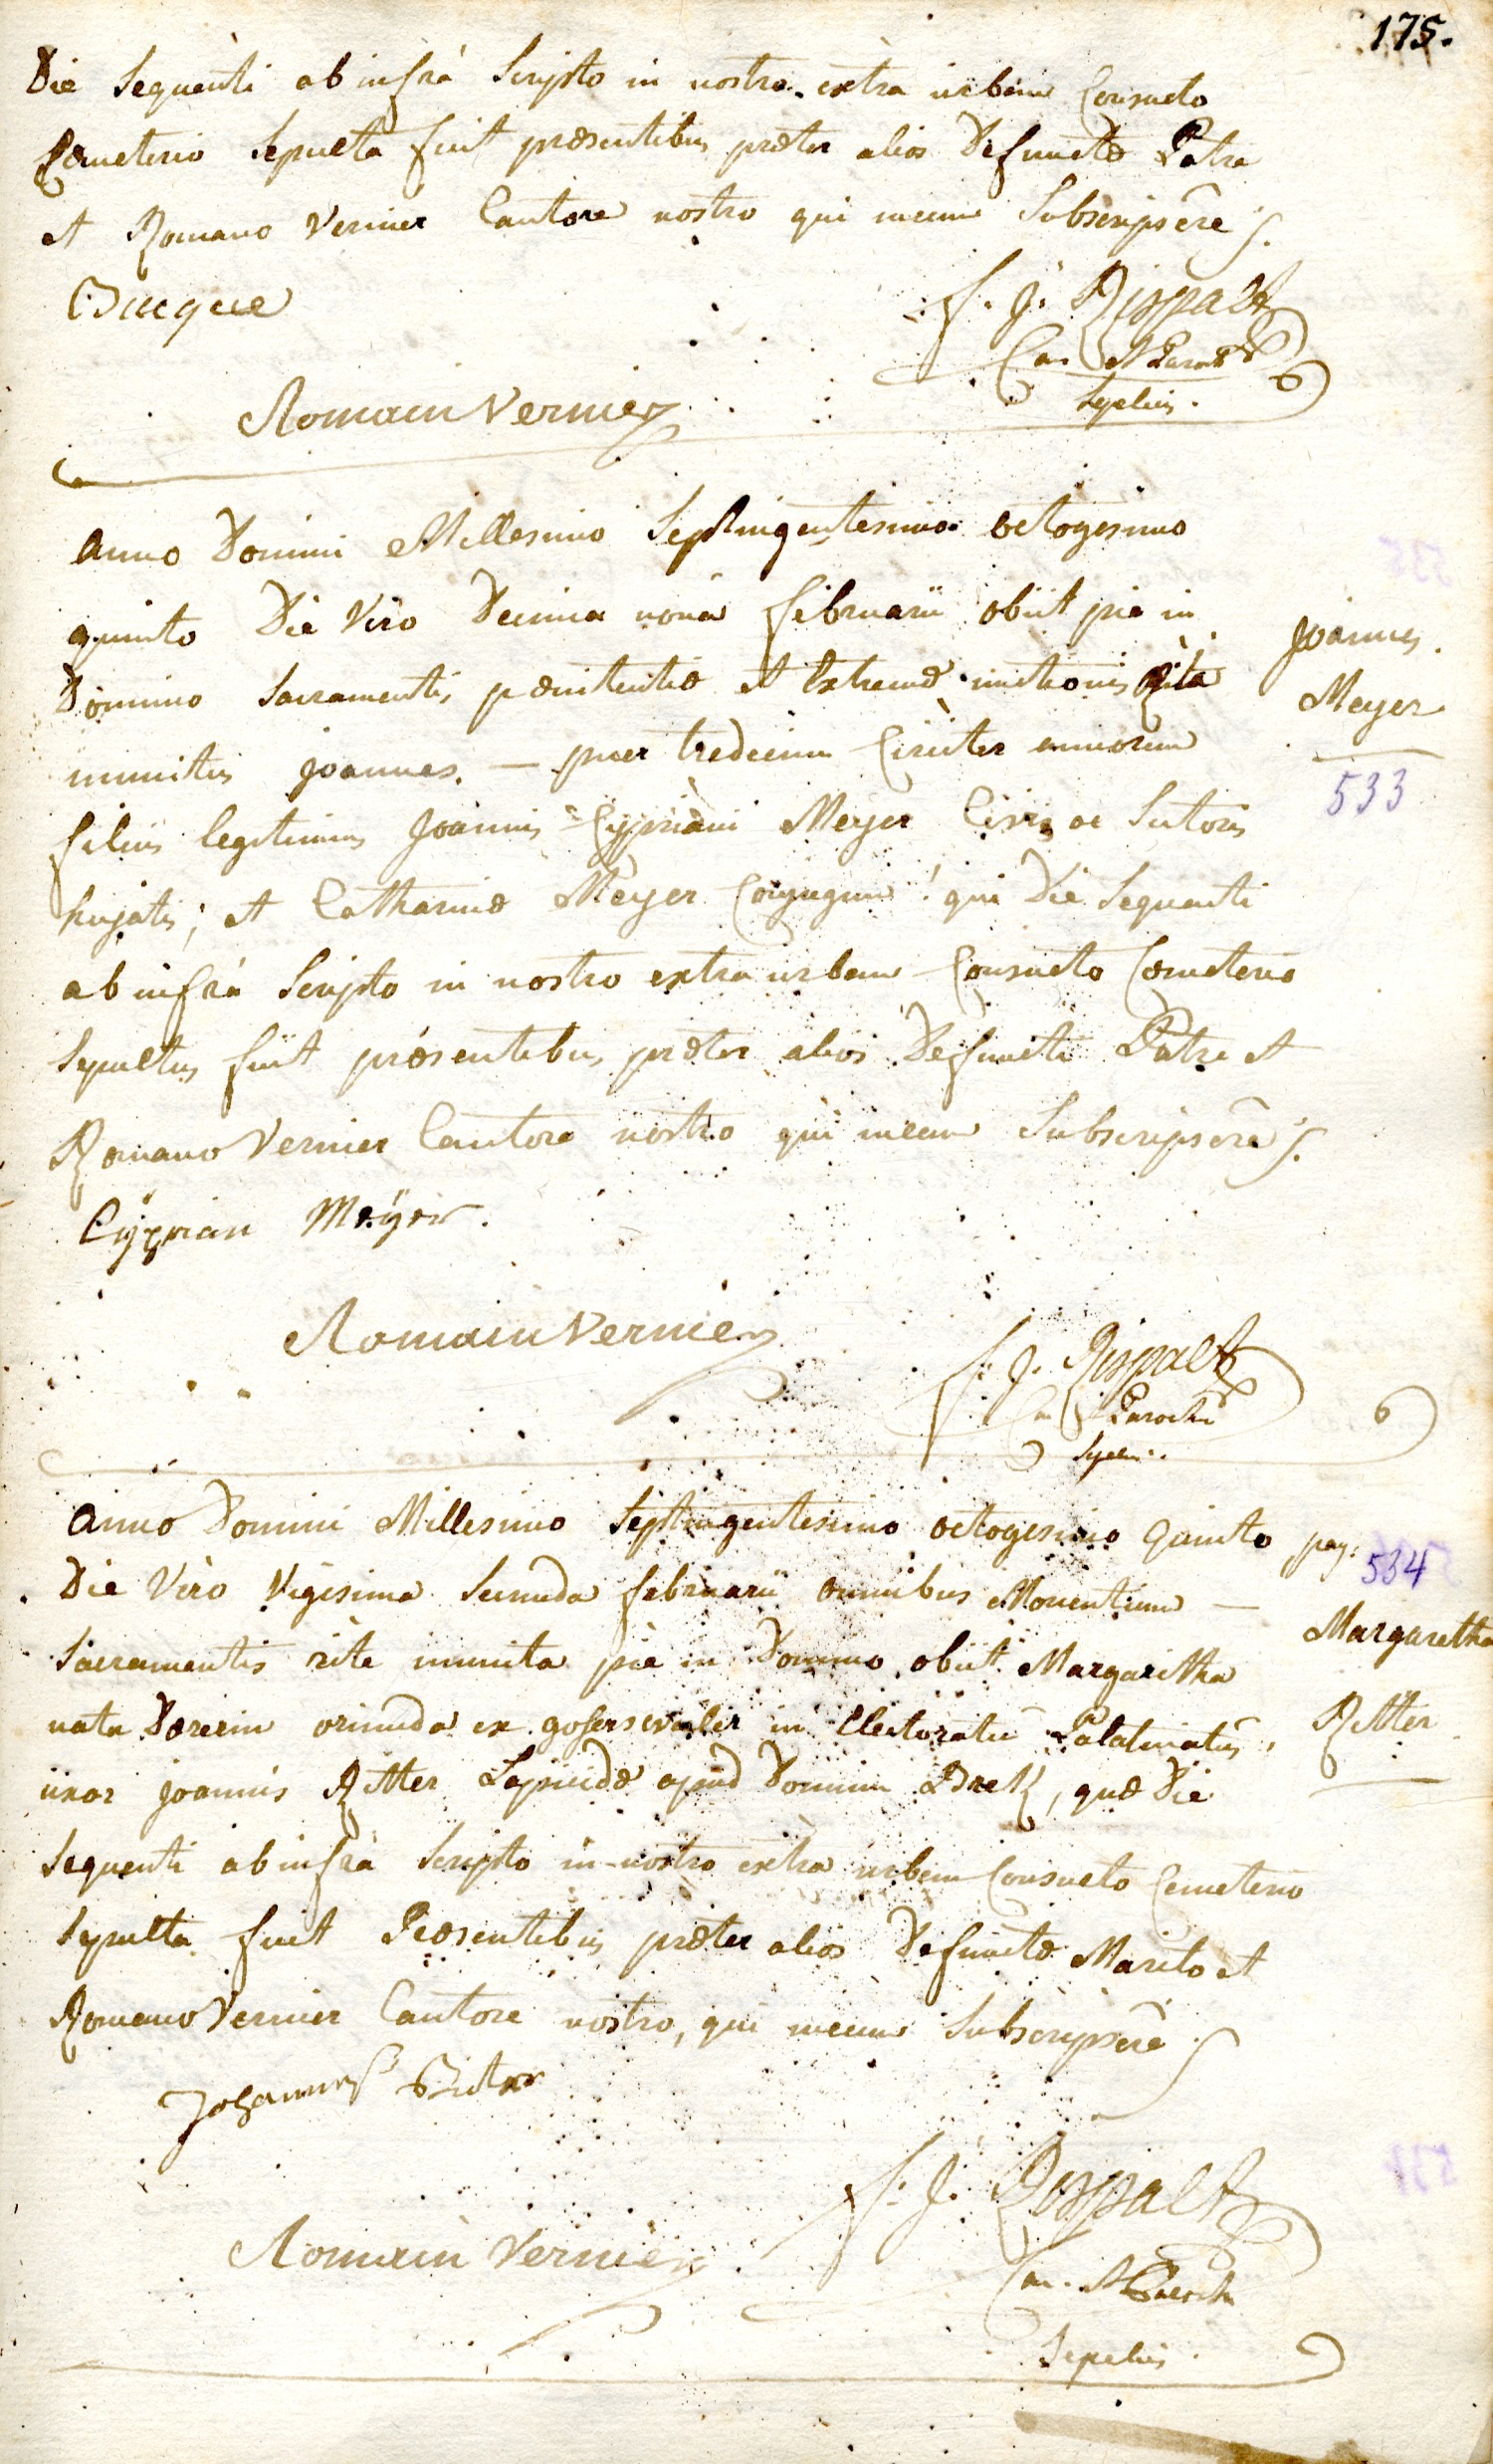 175.
Die Sequenti ab infrà Scripto in nostro extra urbem Consueto
Cœmeterio Sepulta fuit præsentibus præter alios Defunctæ Patre
et Romano Vernier Cantore nostro qui mecum Subscripsêre /.
Bucque
f. j. Rispalt
Can. et Paroch
Sepelius.
Romain Vernier
Anno Domini Millesimo Septingentesimo octogesimo
quinto Die Vero Decima nonâ februarii obiit pie in
Domino Sacramentis pœnitentiæ et Extremæ unctionis Rite
munitus joannes. — puer tredecim Circiter annorum
filius legitimus Joannis = Cypriani Meyer Civis ac Sutoris
hujatis; et Catharinæ Meyer Conjugum! qui Die Sequenti
ab infrà Scripto in nostro extra urbem Consueto Cœmeterio
Sepultus fuit præsentibus præter alios Defuncti Patre et
Romano Vernier Cantore nostro qui mecum Subscripsêre /.
Joannes.
Meyer
533
Cÿprian Meÿer.
Romain Vernier
f. j. Rispalt
Can et Parochus
Sepelius.
Anno Domini Millesimo Septingentesimo octogesimo Quinto
Die Vero Vigesima Secunda februarii omnibus Morientium —
Sacramentis rite munita pie in Domino obiit Margaritha
nata Dorerin oriunda ex in Electoratu Palatinatûs,
uxor joannis Ritter Lapicidæ apud Dominum , quæ Die
Sequenti ab infrà Scripto in nostro extrà urbem Consueto Cemeterio
Sepulta fuit Præsentibus præter alios Defunctæ Marito et
Romano Vernier Cantore nostro, qui mecum Subscripsêre /
pag: 534
Margaretha
Ritter
Johannes Ritter
f. j. Rispalt
Can. et Paroch
Sepelius.
Romain Vernier